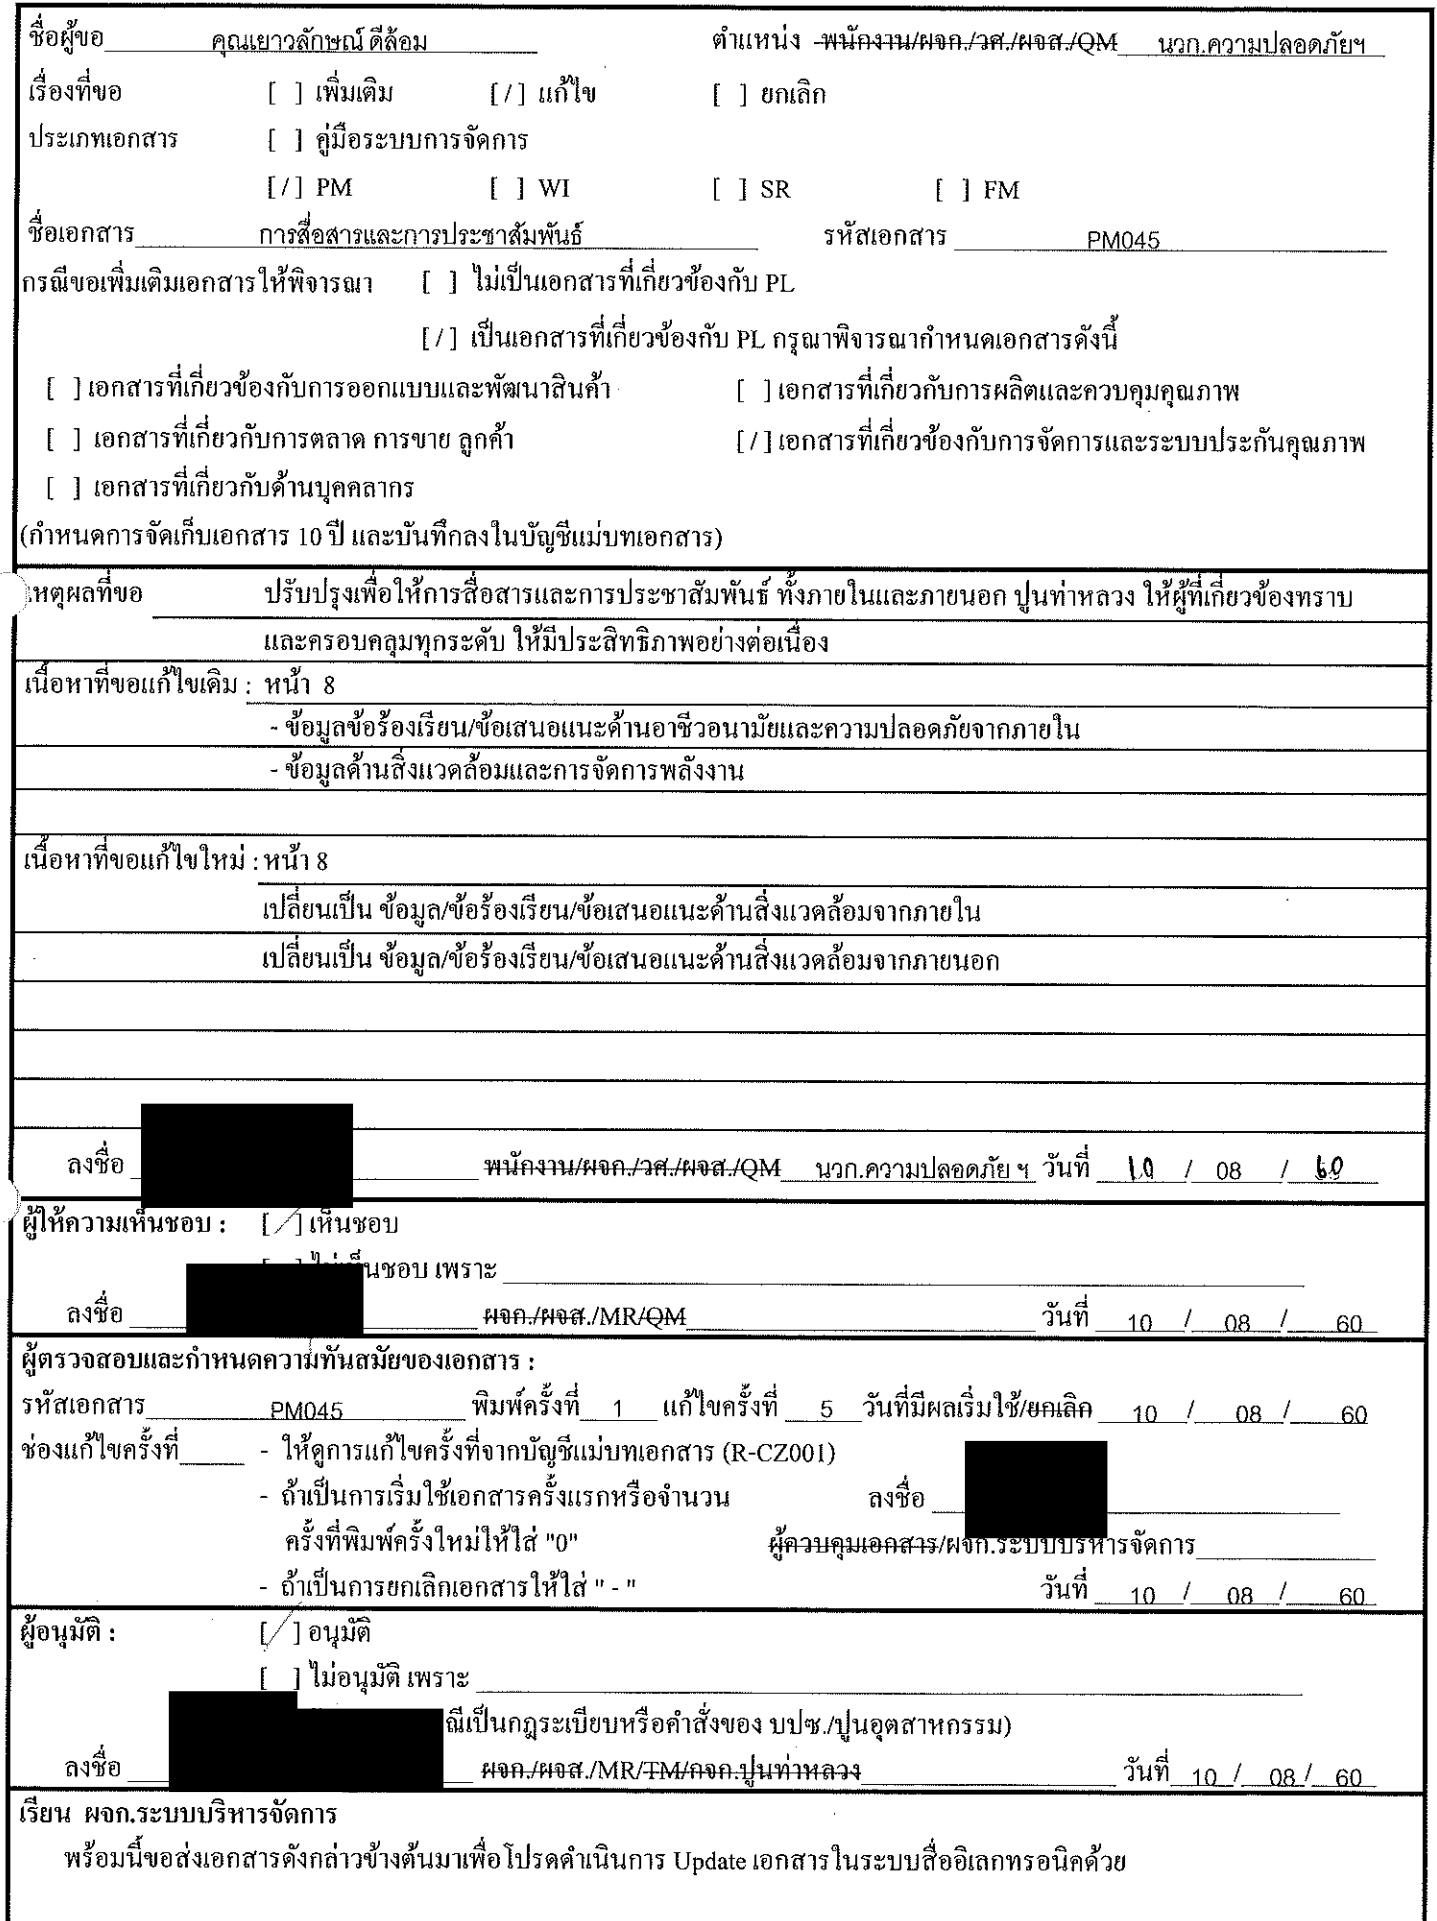 ชื่อผู้ขอ คุณเยาวลักษณ์ ดีล้อม ตำแหน่ง พนักงาน/ผจก./วศ./ผจส./QM นวก.ความปลอดภัยฯ
เรื่องที่ขอ [ ] เพิ่มเติม [/] แก้ไข [ ] ยกเลิก
ประเภทเอกสาร [ ] คู่มือระบบการจัดการ
[/] PM [ ] WI [ ] SR [ ] FM
ชื่อเอกสาร การสื่อสารและการประชาสัมพันธ์ รหัสเอกสาร PM045
กรณีขอเพิ่มเติมเอกสารให้พิจารณา [ ] ไม่เป็นเอกสารที่เกี่ยวข้องกับ PL
[/] เป็นเอกสารที่เกี่ยวข้องกับ PL กรุณาพิจารณากำหนดเอกสารดังนี้
[ ] เอกสารที่เกี่ยวข้องกับการออกแบบและพัฒนาสินค้า [ ] เอกสารที่เกี่ยวกับการผลิตและควบคุมคุณภาพ
[ ] เอกสารที่เกี่ยวกับการตลาด การขาย ลูกค้า [/] เอกสารที่เกี่ยวข้องกับการจัดการและระบบประกันคุณภาพ
[ ] เอกสารที่เกี่ยวกับด้านบุคคลากร
(กำหนดการจัดเก็บเอกสาร 10 ปี และบันทึกลงในบัญชีแม่บทเอกสาร)
เหตุผลที่ขอ ปรับปรุงเพื่อให้การสื่อสารและการประชาสัมพันธ์ ทั้งภายในและภายนอก ปูนท่าหลวง ให้ผู้ที่เกี่ยวข้องทราบ
และครอบคลุมทุกระดับ ให้มีประสิทธิภาพอย่างต่อเนื่อง
เนื้อหาที่ขอแก้ไขเดิม : หน้า 8
- ข้อมูลข้อร้องเรียน/ข้อเสนอแนะด้านอาชีวอนามัยและความปลอดภัยจากภายใน
- ข้อมูลด้านสิ่งแวดล้อมและการจัดการพลังงาน
เนื้อหาที่ขอแก้ไขใหม่ : หน้า 8
เปลี่ยนเป็น ข้อมูล/ข้อร้องเรียน/ข้อเสนอแนะด้านสิ่งแวดล้อมจากภายใน
เปลี่ยนเป็น ข้อมูล/ข้อร้องเรียน/ข้อเสนอแนะด้านสิ่งแวดล้อมจากภายนอก
ลงชื่อ พนักงาน/ผจก./วศ./ผจส./QM นวก.ความปลอดภัย ฯ วันที่ 10 / 08 / 60
ผู้ให้ความเห็นชอบ : [/] เห็นชอบ
ไม่เห็นชอบ เพราะ
ลงชื่อ ผจก./ผจส./MR/QM วันที่ 10 / 08 / 60
ผู้ตรวจสอบและกำหนดความทันสมัยของเอกสาร :
รหัสเอกสาร PM045 พิมพ์ครั้งที่ 1 แก้ไขครั้งที่ 5 วันที่มีผลเริ่มใช้/ยกเลิก 10 / 08 / 60
ช่องแก้ไขครั้งที่ - ให้ดูการแก้ไขครั้งที่จากบัญชีแม่บทเอกสาร (R-CZ001)
- ถ้าเป็นการเริ่มใช้เอกสารครั้งแรกหรือจำนวน ลงชื่อ
ครั้งที่พิมพ์ครั้งใหม่ให้ใส่ "0" ผู้ควบคุมเอกสาร/ผจก.ระบบบริหารจัดการ
- ถ้าเป็นการยกเลิกเอกสารให้ใส่ " - " วันที่ 10 / 08 / 60
ผู้อนุมัติ : [/] อนุมัติ
[ ] ไม่อนุมัติ เพราะ
ณีเป็นกฎระเบียบหรือคำสั่งของ บปซ./ปูนอุตสาหกรรม)
ลงชื่อ ผจก./ผจส./MR/TM/กจก.ปูนท่าหลวง วันที่ 10 / 08 / 60
เรียน ผจก.ระบบบริหารจัดการ
พร้อมนี้ขอส่งเอกสารดังกล่าวข้างต้นมาเพื่อโปรดดำเนินการ Update เอกสารในระบบสื่ออิเลกทรอนิคด้วย